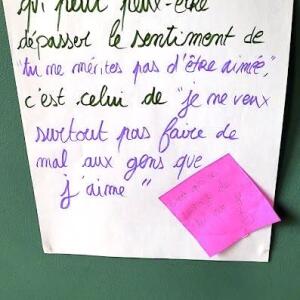 qui peut peut-être
dépasser le sentiment de
"tu me mérites pas d'être aimée",
c'est celui de "je ne veux
surtout pas faire de
mal aux gens que
j'aime"